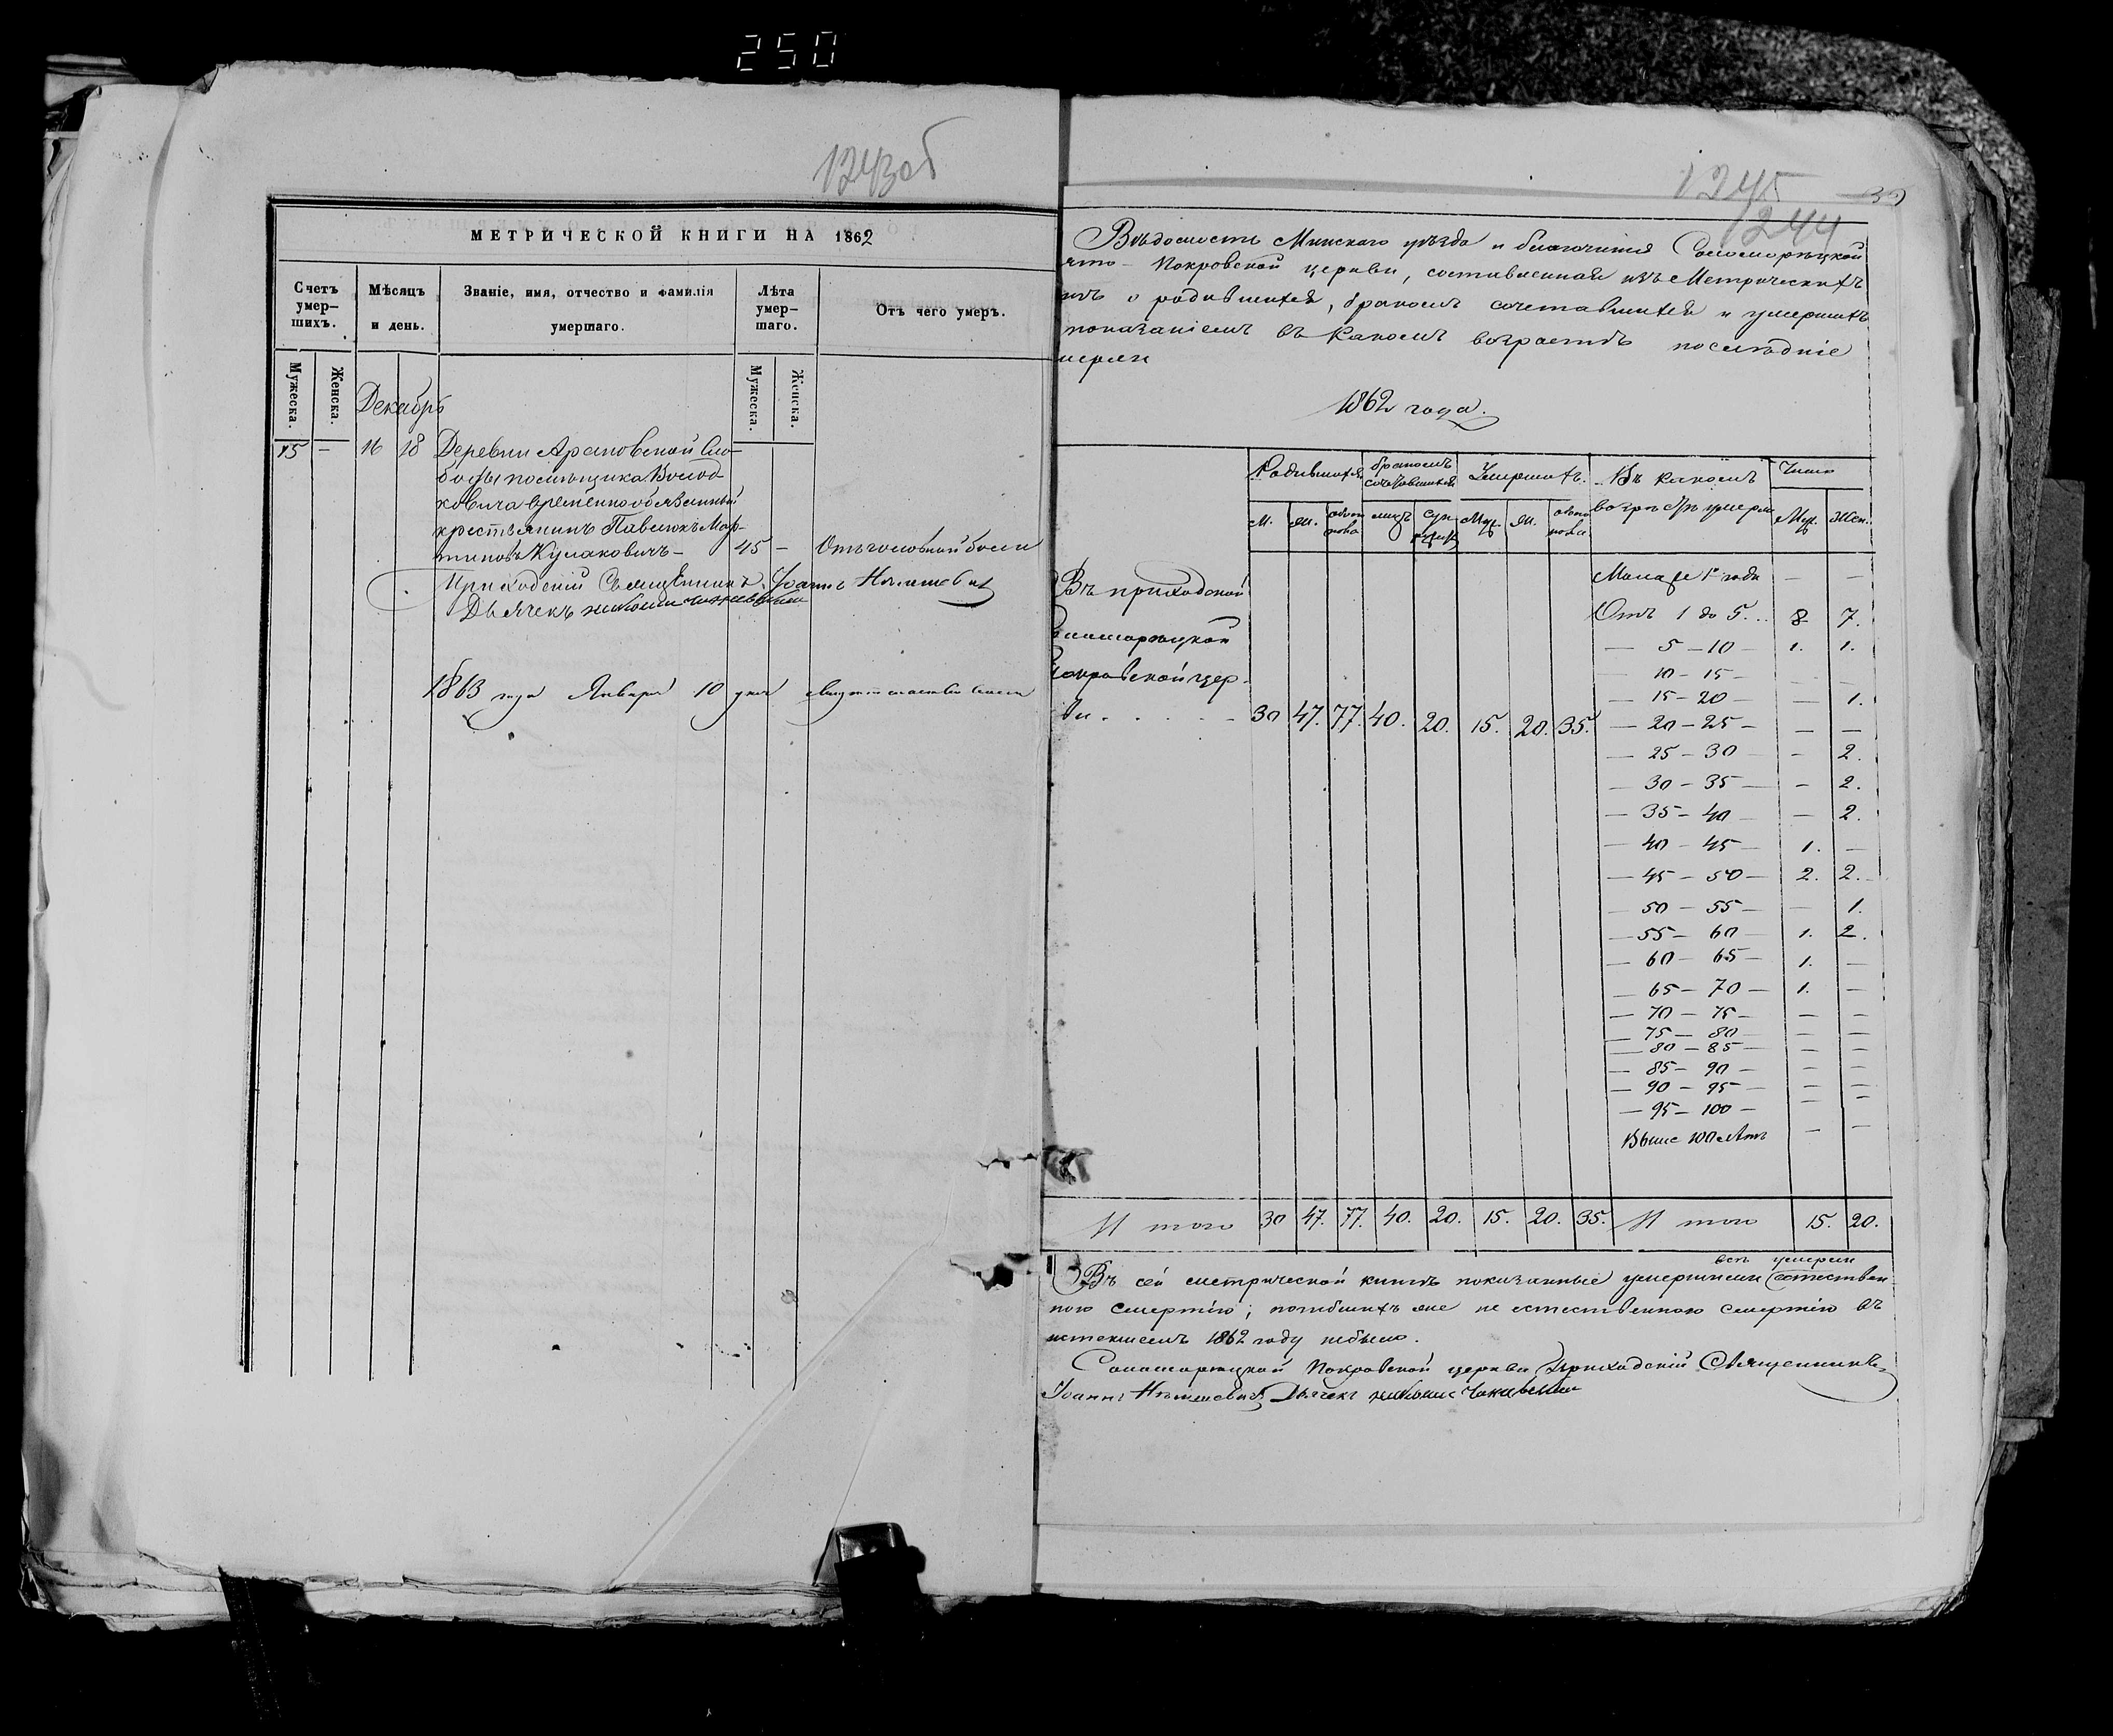 250
124 3об
МЕТРИЧЕСКОЙ КНИГИ НА 1862
Счетъ умер-шихъ.
Мѣсяцъ и день.
Званіе, имя, отчество и фамилія умершаго.
Лѣта умер-шаго.
Отъ чего умеръ.
Мужеска.
Женска.
Мужеска.
Женска.
Декабрь
15 — 16 18 Деревни Арановской Сло-
боды помѣщика Волод-
ковича временнообязанный
крестьянинъ Павлюкъ Мар-
тиновъ Кулаковичъ — 45 — Отъ головной боли
Приходскій Священникъ Іоаннъ
Дьячекъ
1863 года Января 10 дня
1245
1244
30
Вѣдомость Минскаго уѣзда и благочинія Соломорѣцкой
ято-Покровской церкви, составленная изъ Метрическихъ
игъ о родившихся, бракомъ сочетавшихся и умершихъ
показаніемъ въ какомъ возрастѣ послѣдніе
мерли
1862 года.
Родившихся
бракомъ сочетавшихся
Умершихъ.
Въ какомъ возрастѣ умерли
Число
М.
Ж.
обоего пола
лицъ
суп
Муж.
Ж.
обоего пола
Муж.
Жен.
Въ приходской
Покровской цер-
кви . . . . — 30 47. 77. 40. 20. 15. 20. 35.
Менѣе 1го года — —
Отъ 1 до 5... 8 7.
— 5 — 10 — 1. 1.
10 — 15 — — —
— 15 — 20 — — 1.
— 20 — 25 — — —
— 25 — 30 — — 2.
— 30 — 35 — — 2.
— 35 — 40 — — 2.
— 40 — 45 — 1. —
— 45 — 50 — 2. 2.
— 50 — 55 — — 1.
— 55 — 60 — 1. 2.
— 60 — 65 — 1. —
— 65 — 70 — 1. —
— 70 — 75 — — —
— 75 — 80 — — —
— 80 — 85 — — —
— 85 — 90 — — —
— 90 — 95 — — —
— 95 — 100 — — —
Выше 100 лѣтъ — —
Итого 30 47. 77. 40. 20. 15. 20. 35. Итого 15. 20.
всѣ умерли
Въ сей метрической книгѣ показанные умершими естествен-
ною смертію; погибшихъ же не естественною смертію въ
истекшемъ 1862 году небыло.
Соломорѣцкой Покровской церкви Приходскій Священникъ
Іоаннъ Дьячекъ